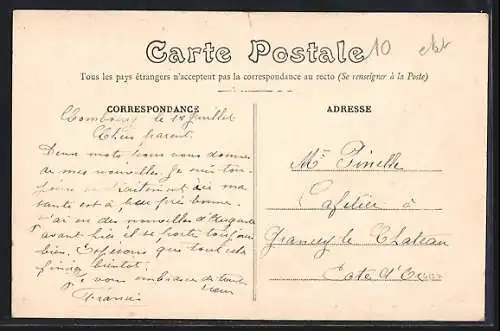 Carte Postale
10
Tous les pays étrangers n'acceptent pas la correspondance au recto (Se renseigner à la Poste)
CORRESPONDANCE
le 12 Juillet
Chers parent.
Deux mots pour vous donner
de mes nouvelles je suis tou-
traitement ma
santé est à peu près bonne.
j'ai eu des nouvelles d'
avant hier il se porte toujours
bien. Espérons que tout cela
finira bientot.
vous embrasse de tout
cœur
Francis
ADRESSE
Mr Pinelle
Cafetier à
Grancey le Chateau
Cote d'Or